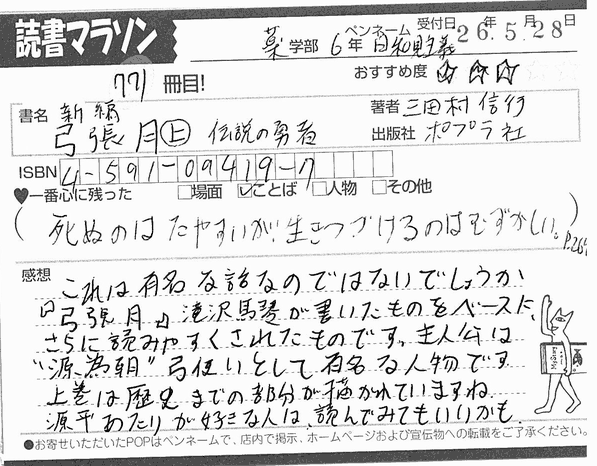 読書マラソン
薬学部 6年 ペンネーム 日和見主義 受付日 26年5月28日
771冊目!
おすすめ度 ☆☆☆
書名 新編
弓張月㊤ 伝説の勇者
著者 三田村信行
出版社 ポプラ社
ISBN 4-591-09419-7
♥一番心に残った □場面 ☑ことば □人物 □その他
(死ぬのはたやすいが、生きつづけるのはむずかしい。
感想
これは有名な話なのではないでしょうか
『弓張月』滝沢馬琴が書いたものをベースに、
さらに読みやすくされたものです。主人公は
"源為朝"弓使いとして有名な人物です
上巻は歴史までの部分が描かれていますね
源平あたりが好きな人は、読んでみてもいいかも。
●お寄せいただいたPOPはペンネームで、店内で掲示、ホームページおよび宣伝物への転載をご了承ください。